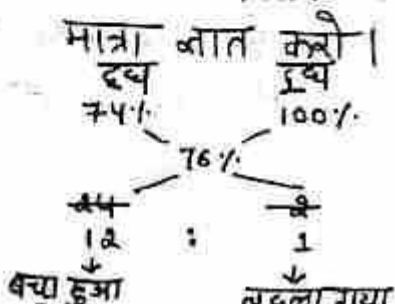 मात्रा ज्ञात करो।
दूध दूध
74% 100%
76%
24 2
12 : 1
बचा हुआ बदला गया